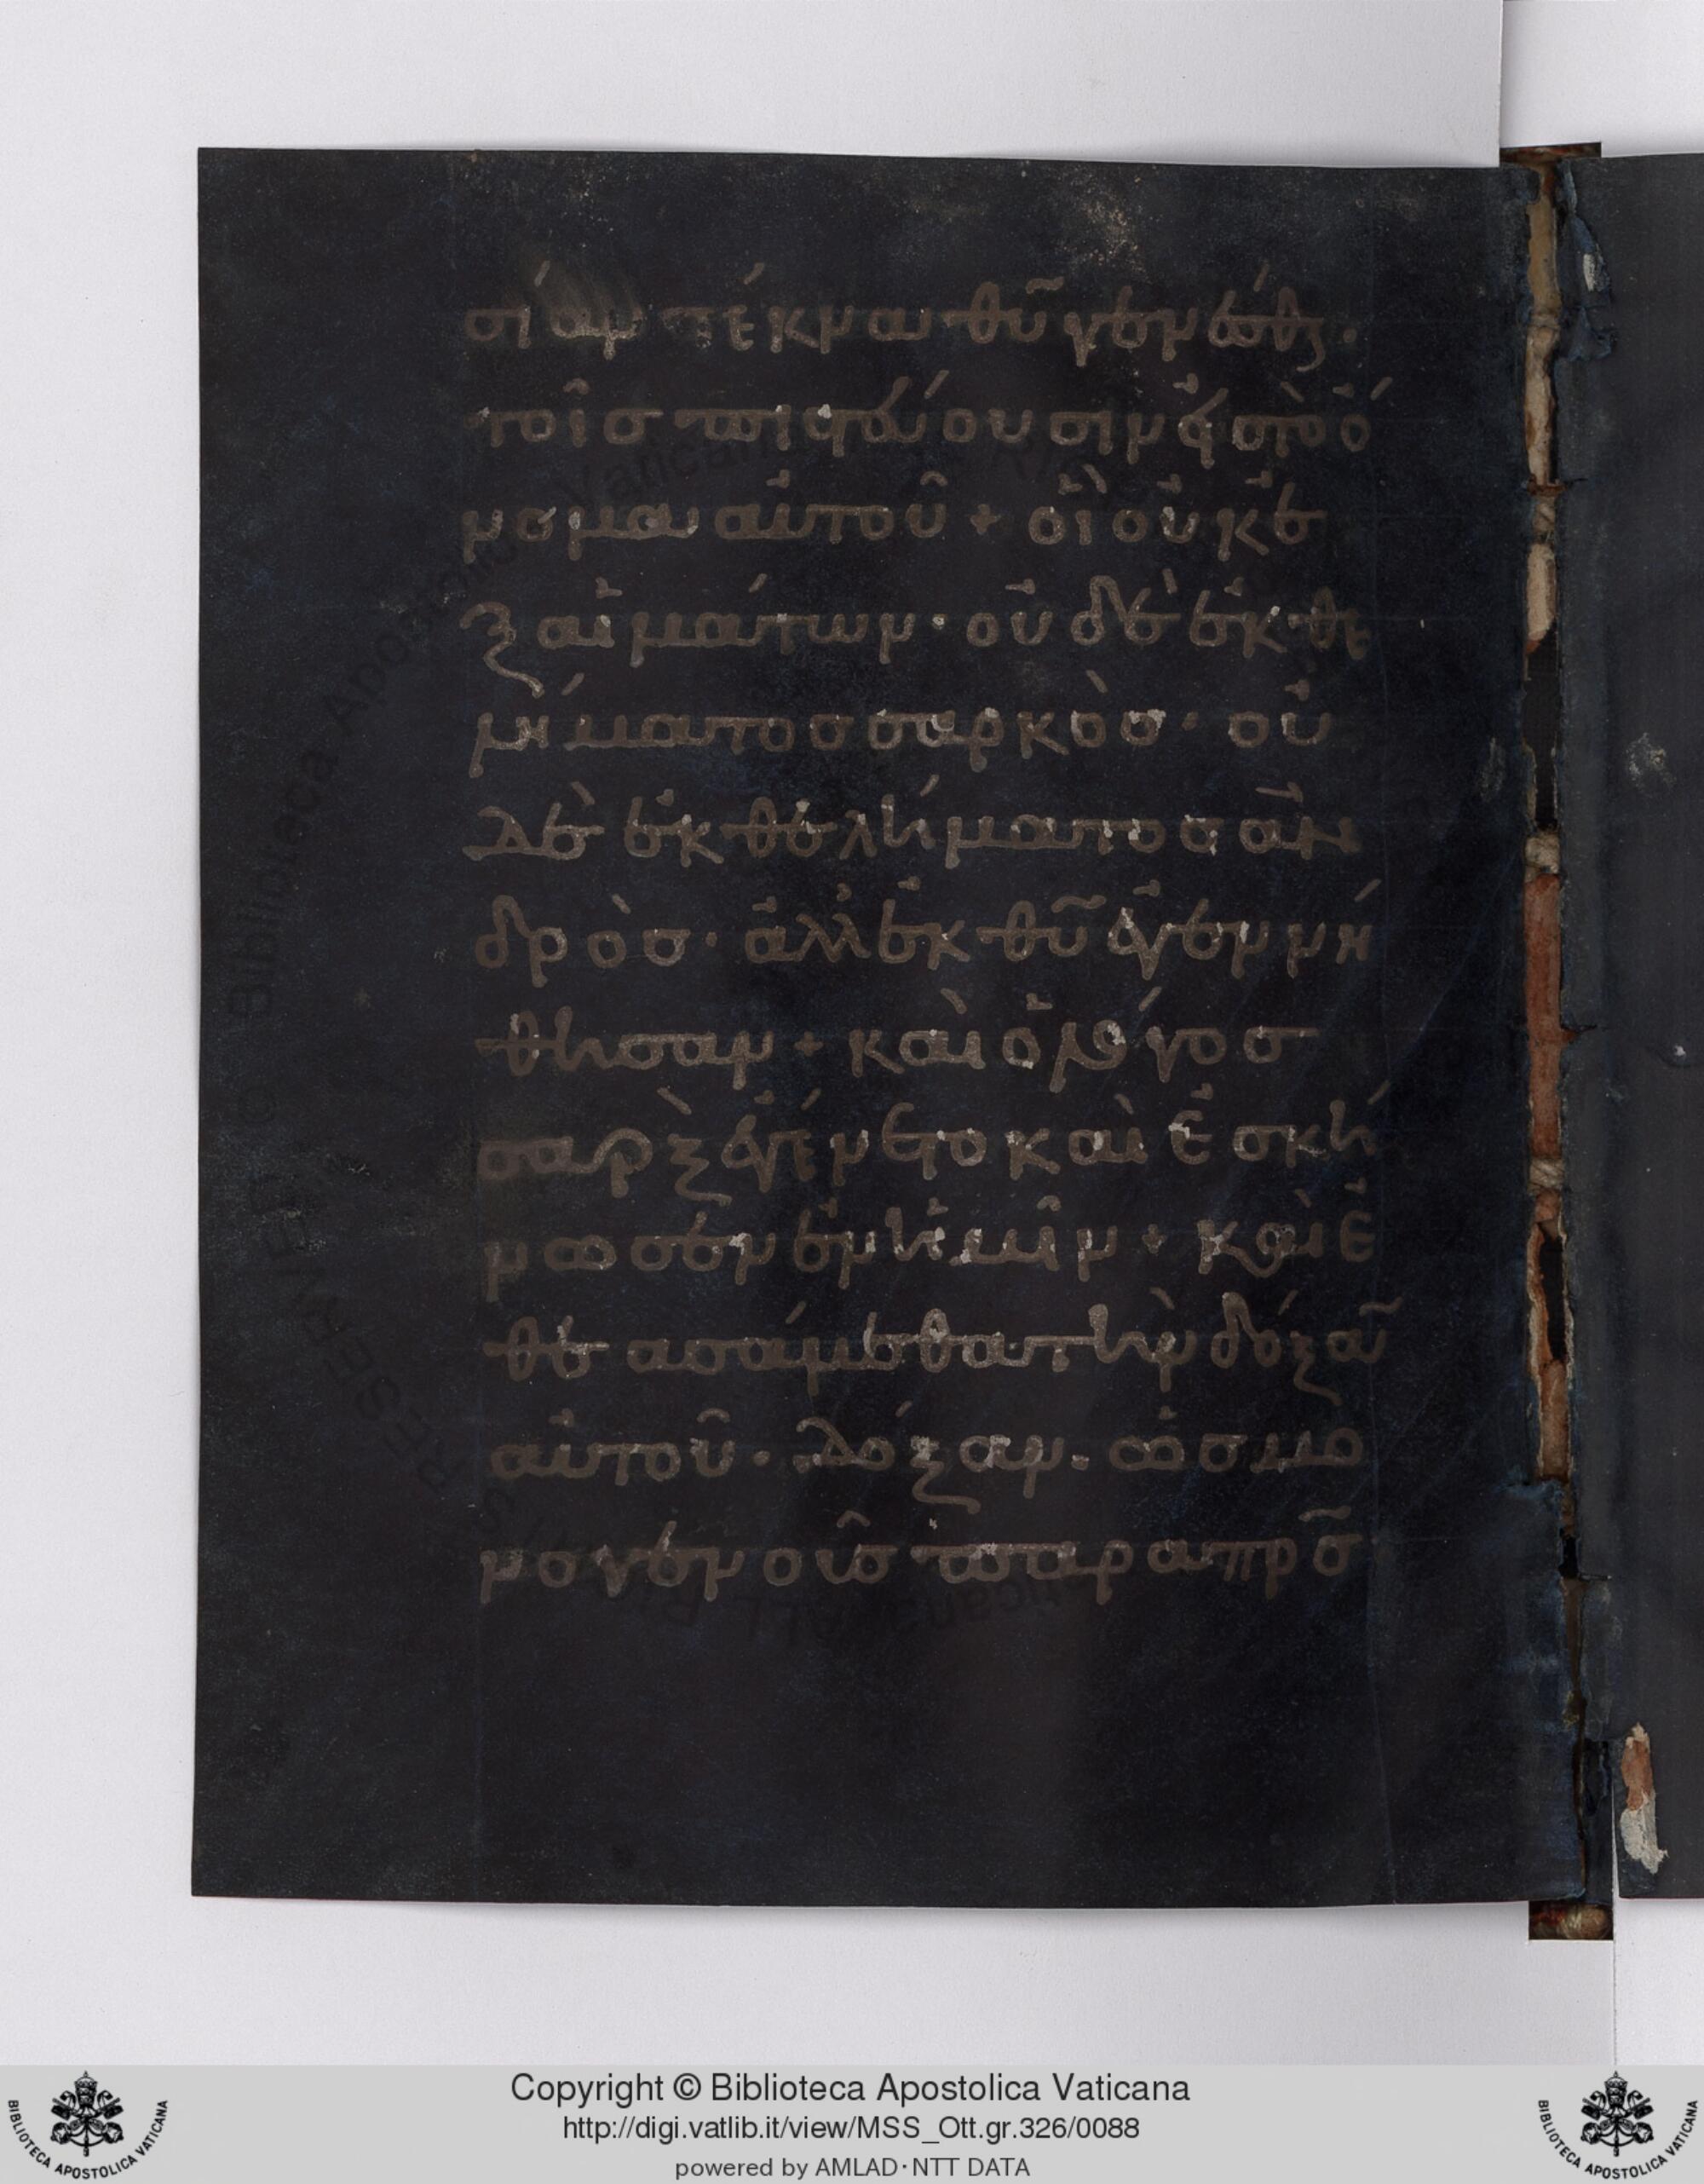 σίαν τέκνα θῦ γενέσθαι·
τοῖς πιστεύουσιν εἰς τὸ ὄ
νομα αὐτοῦ + οἳ οὐκ ἐ
ξ αἱμάτων· οὐδὲ ἐκ θε
λήματος σαρκὸς· οὐ
δὲ ἐκ θελήματος ἀν
δρὸς· ἀλλ' ἐκ θῦ ἐγεννή
θησαν + καὶ ὁ λόγος
σαρξ ἐγένετο καὶ ἐσκή
νωσεν ἐν ἡμῖν + καὶ ἐ
θεασάμεθα τὴν δόξαν
αὐτοῦ· δόξαν· ὡς μο
νογενοῦς παρα πρς
Copyright © Biblioteca Apostolica Vaticana
http://digi.vatlib.it/view/MSS_Ott.gr.326/0088
powered by AMLAD·NTT DATA
BIBLIOTECA APOSTOLICA VATICANA
BIBLIOTECA APOSTOLICA VATICANA